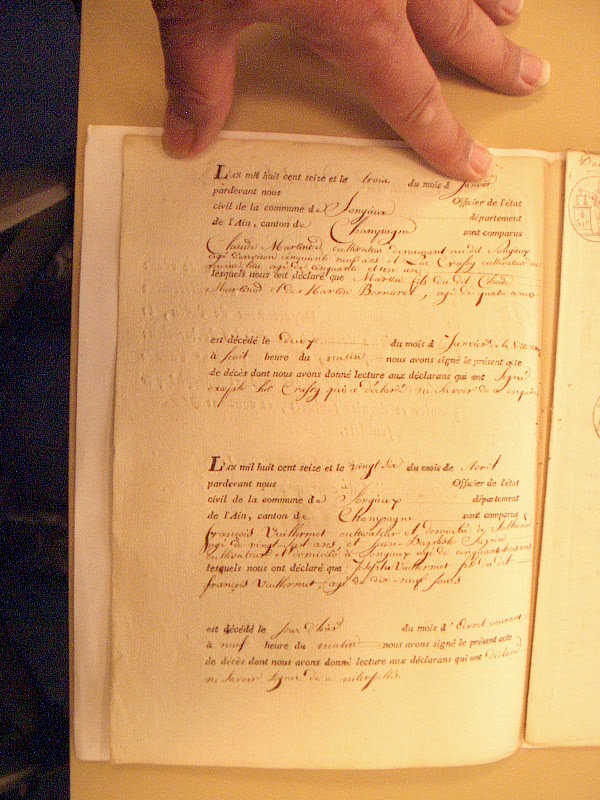 L'AN mil huit cent seize et le trois du mois d Janvier
pardevant nous Officier de l'état
civil de la commune de Songieux département
de l'Ain, canton de Champagne sont comparus
Claude Martinod cultivateur demeurant au dit Songieux
agé d'environ cinquante neuf ans et Crassy cultivateur
agé de cinquante et un an
lesquels nous ont déclaré que Martin fils du dit Claude
Martinod et de Martin Bornarel, agé de quatre
est décédé le deux du mois d Janvier
à huit heure du matin nous avons signé le présent acte
de décès dont nous avons donné lecture aux déclarans qui ont signé
Crassy qui a déclaré ne savoir de a
L'AN mil huit cent seize et le vingt six du mois de Avril
pardevant nous Officier de l'état
civil de la commune de Songieux département
de l'Ain, canton de Champagne sont comparus
françois Vuillermet cultivateur et domicilié
agé de vingt sept ans, et Jean-Baptiste
cultivateur et domicilié à Songieux agé de cinquante
lesquels nous ont déclaré que Josephte Vuillermet du dit
françois Vuillermet, agé de dix-neuf jours
est décédé le jour d'hier du mois d' Avril courant
à neuf heure du matin nous avons signé le présent acte
de décès dont nous avons donné lecture aux déclarans qui ont déclaré
ne savoir signer de a